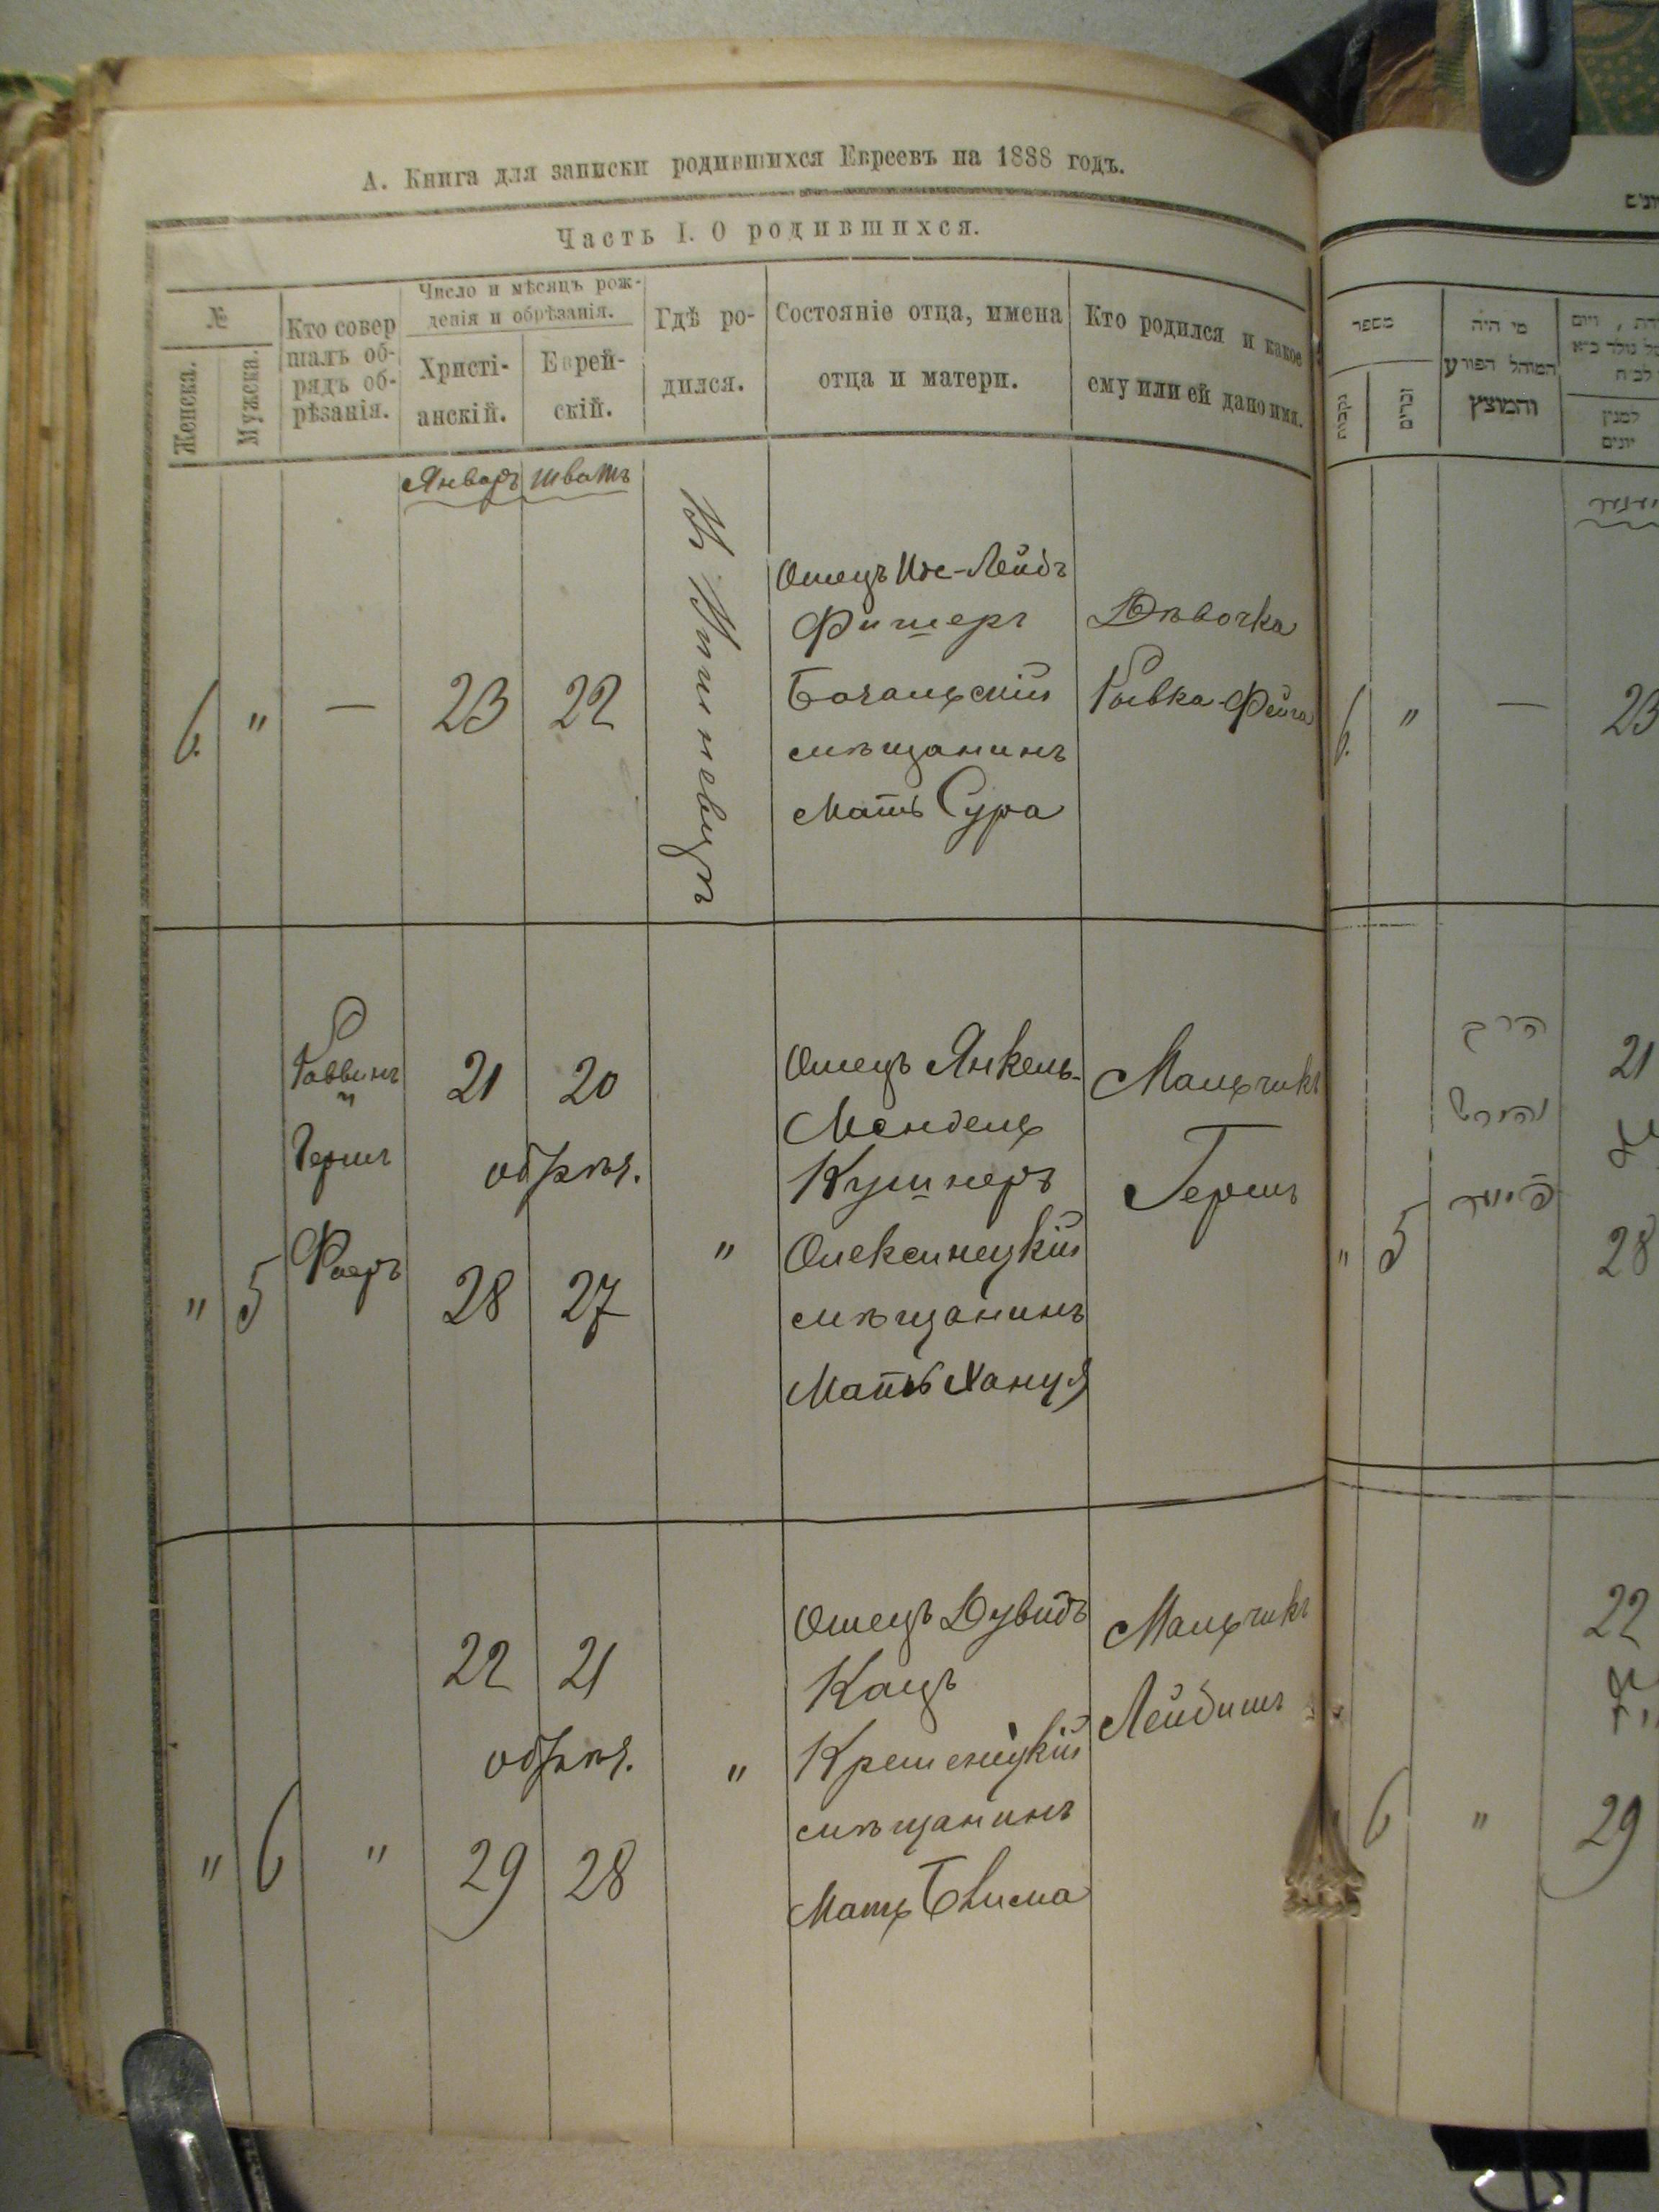 А. Книга для записки родившихся Евреевъ на 1888 годъ.
Часть I. О родившихся.
№
Женска.
Мужска.
Кто совер
шалъ об-
рядъ об-
рѣзанія.
Число и мѣсяцъ рож-
денія и обрѣзанія.
Христі-
анскій.
Еврей-
скій.
Гдѣ ро-
дился.
Состояніе отца, имена
отца и матери.
Кто родился и какое
ему или ей дано имя.
Январь Шватъ
6. " — 23 22
Отецъ Иос-Лейбъ
Фишеръ
мѣщанинъ
Мать Сура
Дѣвочка
Ривка-Фейга
" 5
Раввинъ
и
Гершъ
Фаеръ
21 20
обрѣз.
28 27
"
Отецъ Янкель-
Мендель
Кушнеръ
Олексинецкій
мѣщанинъ
Мать Хануя
Мальчикъ
Гершъ
" 6 "
22 21
обрѣз.
29 28
"
Отецъ Дувидъ
Кацъ
мѣщанинъ
Мать
Мальчикъ
Лейбишъ
מספר
נקבות
זכרים
מי היה
המוהל הפורע
והמוצץ
למנין
יונים
6. " — 23
" 5
הרב
והירש
21
28
6 "
22
29